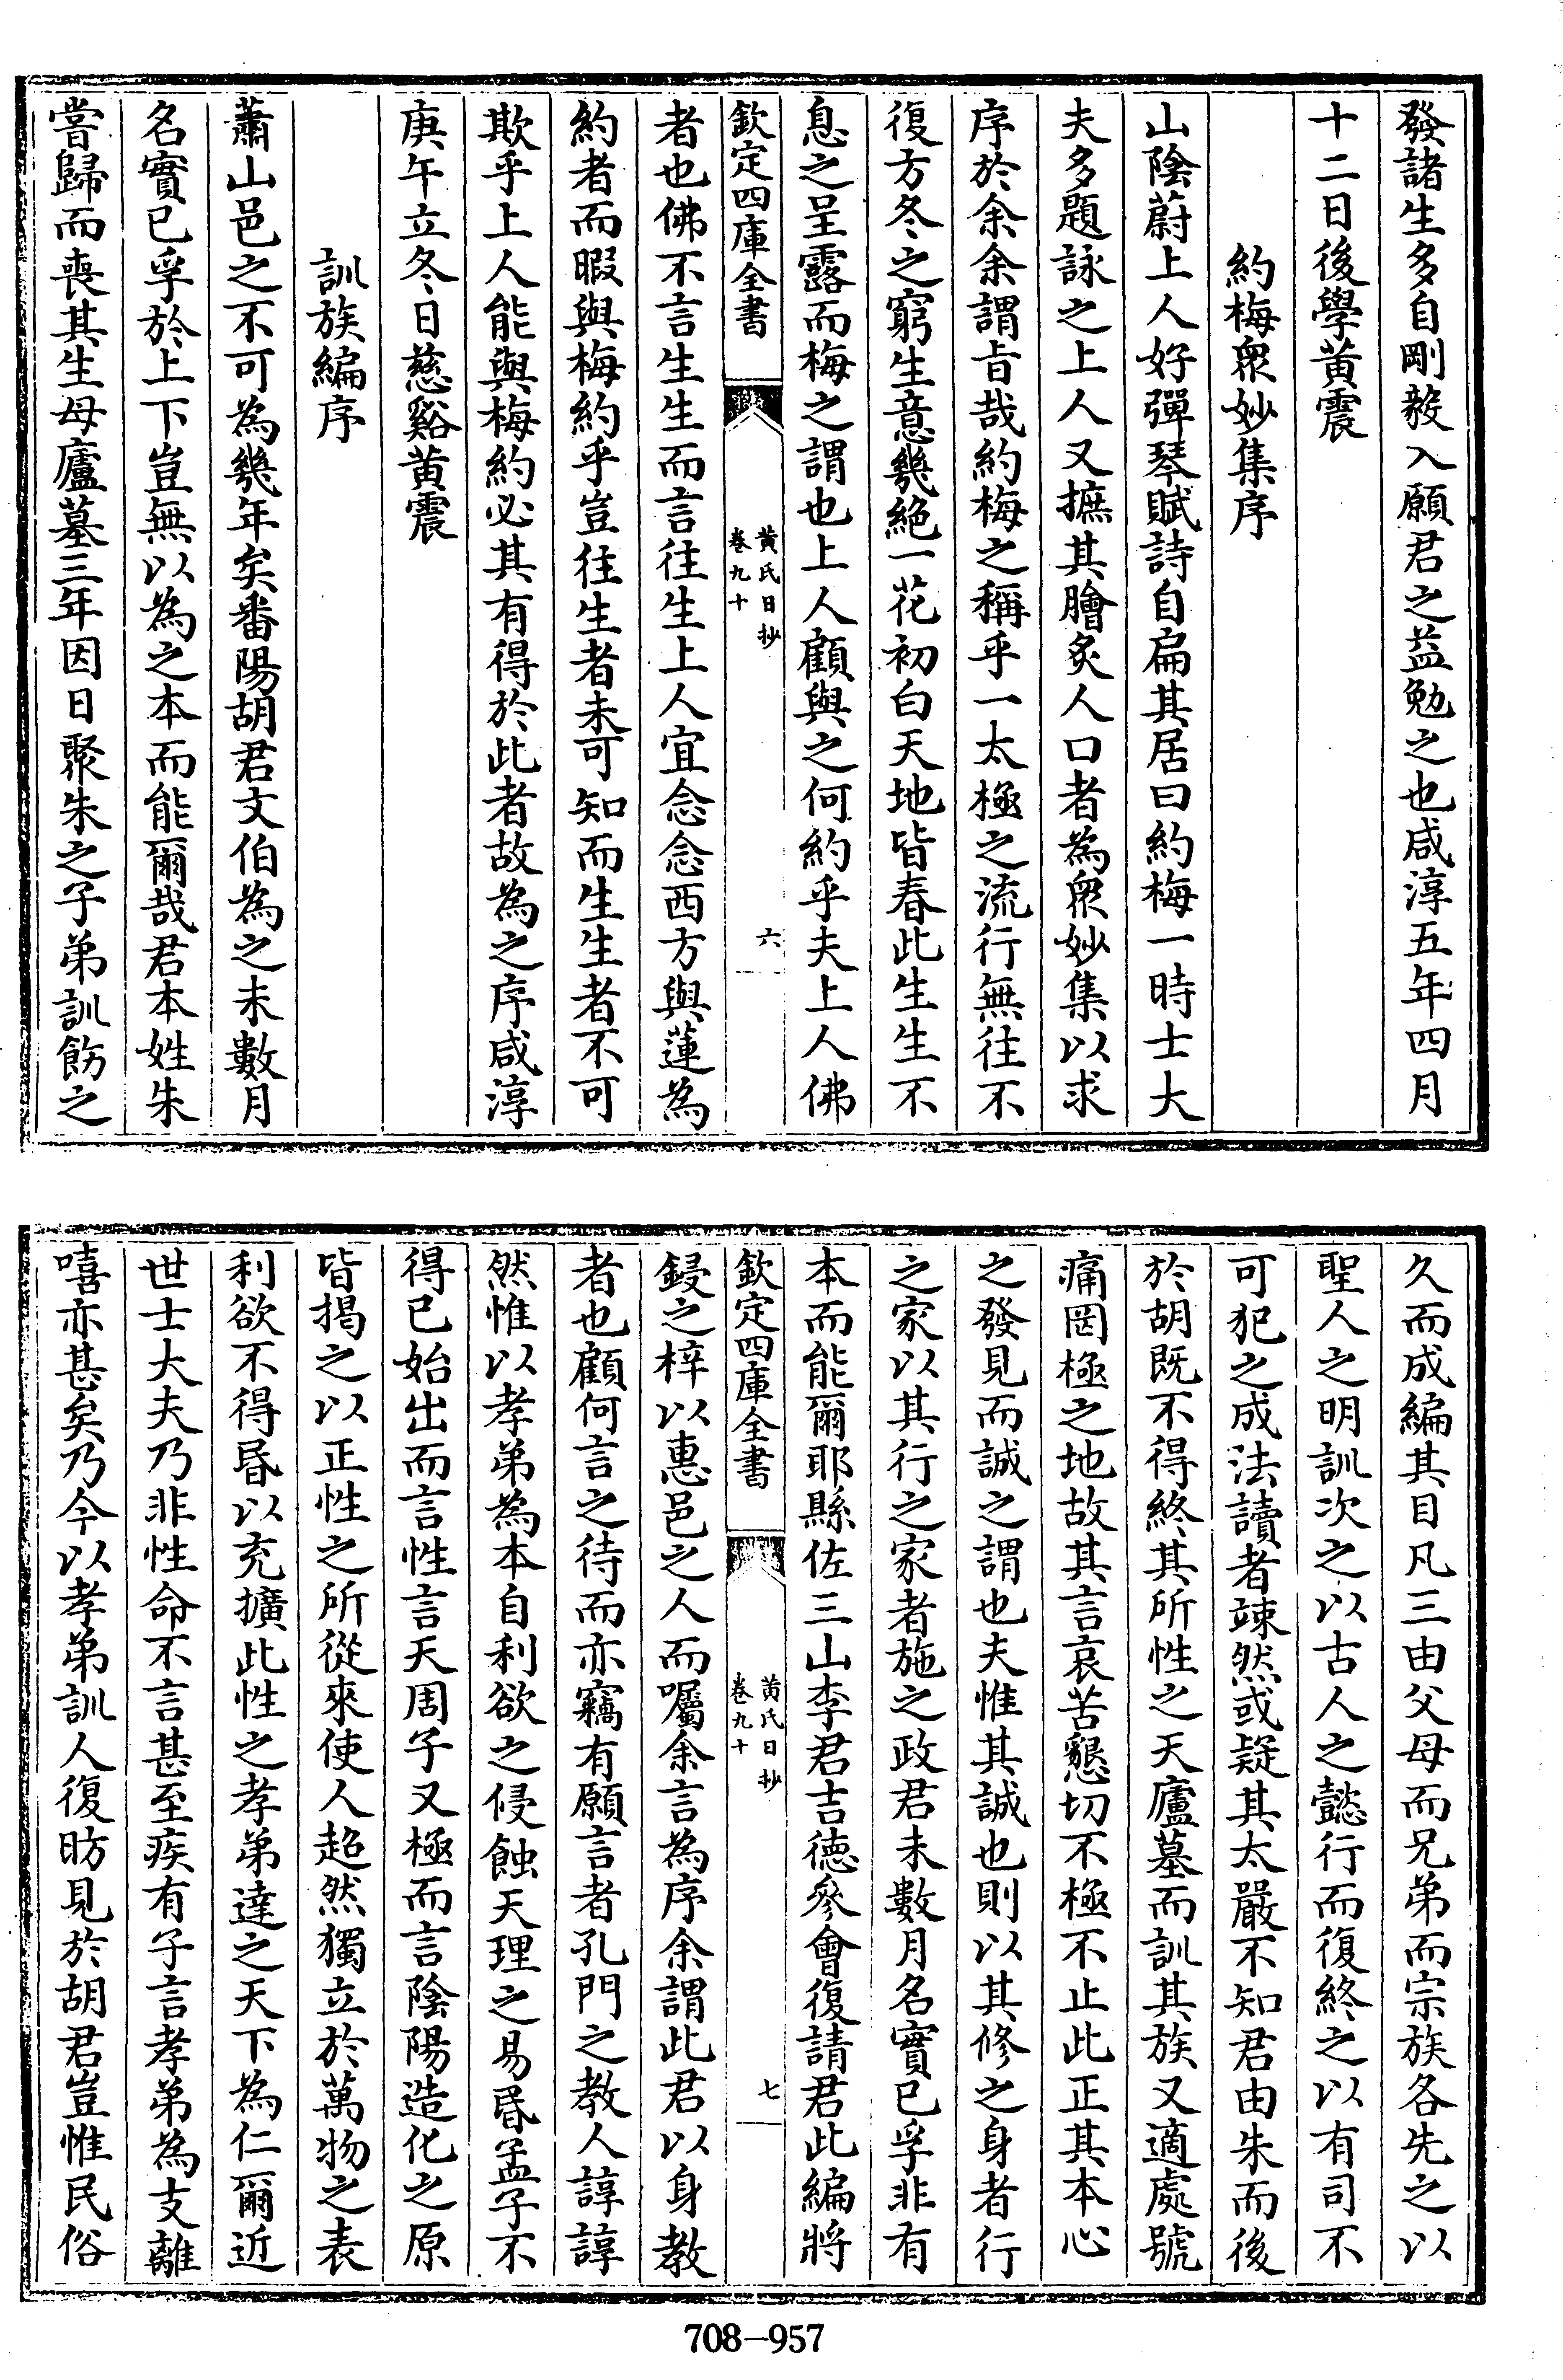 發諸生多自剛毅入願君之益勉之也咸淳五年四月
十二日後學黄震
約梅衆妙集序
山陰蔚上人好彈琴賦詩自扁其居曰約梅一時士大
夫多題詠之上人又摭其膾炙人口者為衆妙集以求
序於余余謂旨哉約梅之稱乎一太極之流行無往不
復方冬之窮生意幾絶一花初白天地皆春此生生不
息之呈露而梅之謂也上人顧與之何約乎夫上人佛
欽定四庫全書
黄氏日抄
卷九十
六
者也佛不言生生而言往生上人宜念念西方與蓮為
約者而暇與梅約乎豈往生者未可知而生生者不可
欺乎上人能與梅約必其有得於此者故為之序咸淳
庚午立冬日慈谿黄震
訓族編序
蕭山邑之不可為幾年矣番陽胡君文伯為之未數月
名實已孚於上下豈無以為之本而能爾哉君本姓朱
嘗歸而喪其生母廬墓三年因日聚朱之子弟訓飭之
久而成編其目凡三由父母而兄弟而宗族各先之以
聖人之明訓次之以古人之懿行而復終之以有司不
可犯之成法讀者竦然或疑其太嚴不知君由朱而後
於胡既不得終其所性之天廬墓而訓其族又適處號
痛罔極之地故其言哀苦懇切不極不止此正其本心
之發見而誠之謂也夫惟其誠也則以其修之身者行
之家以其行之家者施之政君未數月名實已孚非有
本而能爾耶縣佐三山李君吉德參會復請君此編將
欽定四庫全書
黄氏日抄
卷九十
七
鋟之梓以惠邑之人而囑余言為序余謂此君以身教
者也顧何言之待而亦竊有願言者孔門之教人諄諄
然惟以孝弟為本自利欲之侵蝕天理之易昏孟子不
得已始出而言性言天周子又極而言陰陽造化之原
皆揭之以正性之所從來使人超然獨立於萬物之表
利欲不得昏以充擴此性之孝弟達之天下為仁爾近
世士大夫乃非性命不言甚至疾有子言孝弟為支離
嘻亦甚矣乃今以孝弟訓人復昉見於胡君豈惟民俗
708—957